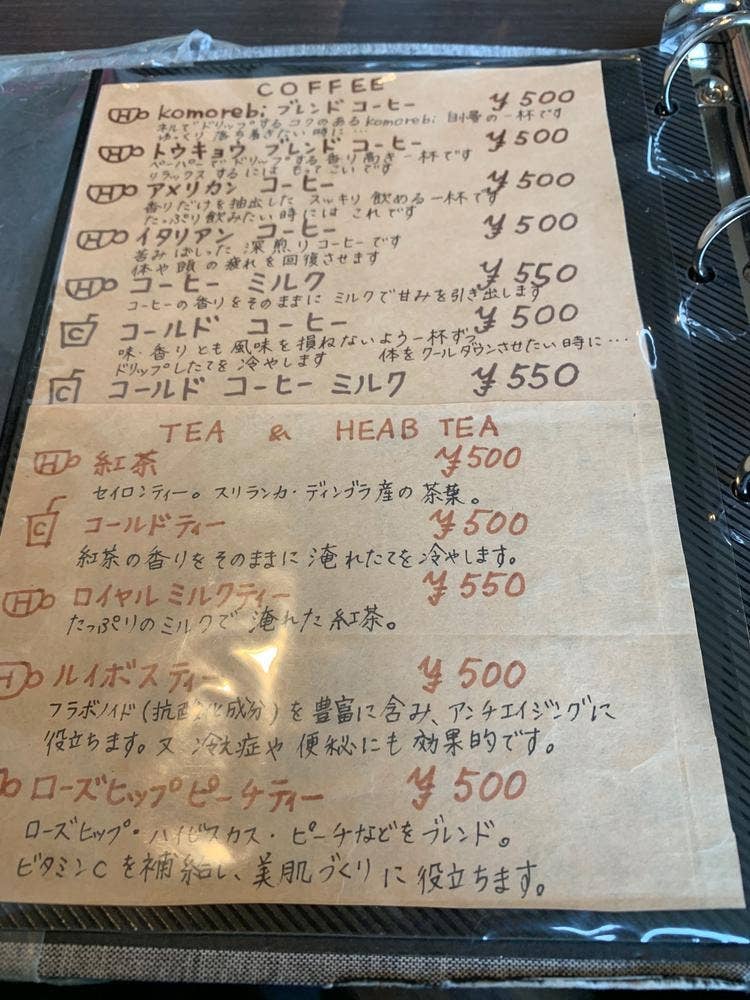 COFFEE
H komorebi ブレンドコーヒー ¥500
ネルでドリップする コクのある komorebi 自慢の一杯です
ゆっくり 落ち着きたい 時に…
H トウキョウ ブレンド コーヒー ¥500
ペーパーでドリップする香り高き一杯です
リラックスするには もってこいです
H アメリカン コーヒー ¥500
香りだけを抽出した スッキリ 飲める一杯です
たっぷり飲みたい時には これです
H イタリアン コーヒー ¥500
苦みばしった 深煎りコーヒーです
体や頭の疲れを回復させます
H コーヒー ミルク ¥550
コーヒーの香りをそのままに ミルクで甘みを引き出します
C コールド コーヒー ¥500
味・香りとも風味を損ねないよう一杯ずつ
ドリップしたてを冷やします 体をクールダウンさせたい時に…
C コールド コーヒー ミルク ¥550
TEA & HEAB TEA
H 紅茶 ¥500
セイロンティー。スリランカ・ディンブラ産の茶葉。
C コールドティー ¥500
紅茶の香りをそのままに 淹れたてを冷やします。
H ロイヤルミルクティー ¥550
たっぷりのミルクで 淹れた紅茶。
H ルイボスティー ¥500
フラボノイド(抗酸化成分)を豊富に含み、アンチエイジングに
役立ちます。又 冷え症や 便秘にも 効果的です。
ローズヒップピーチティー ¥500
ローズヒップ・ハイビスカス・ピーチなどをブレンド。
ビタミンCを補給し、美肌づくりに役立ちます。